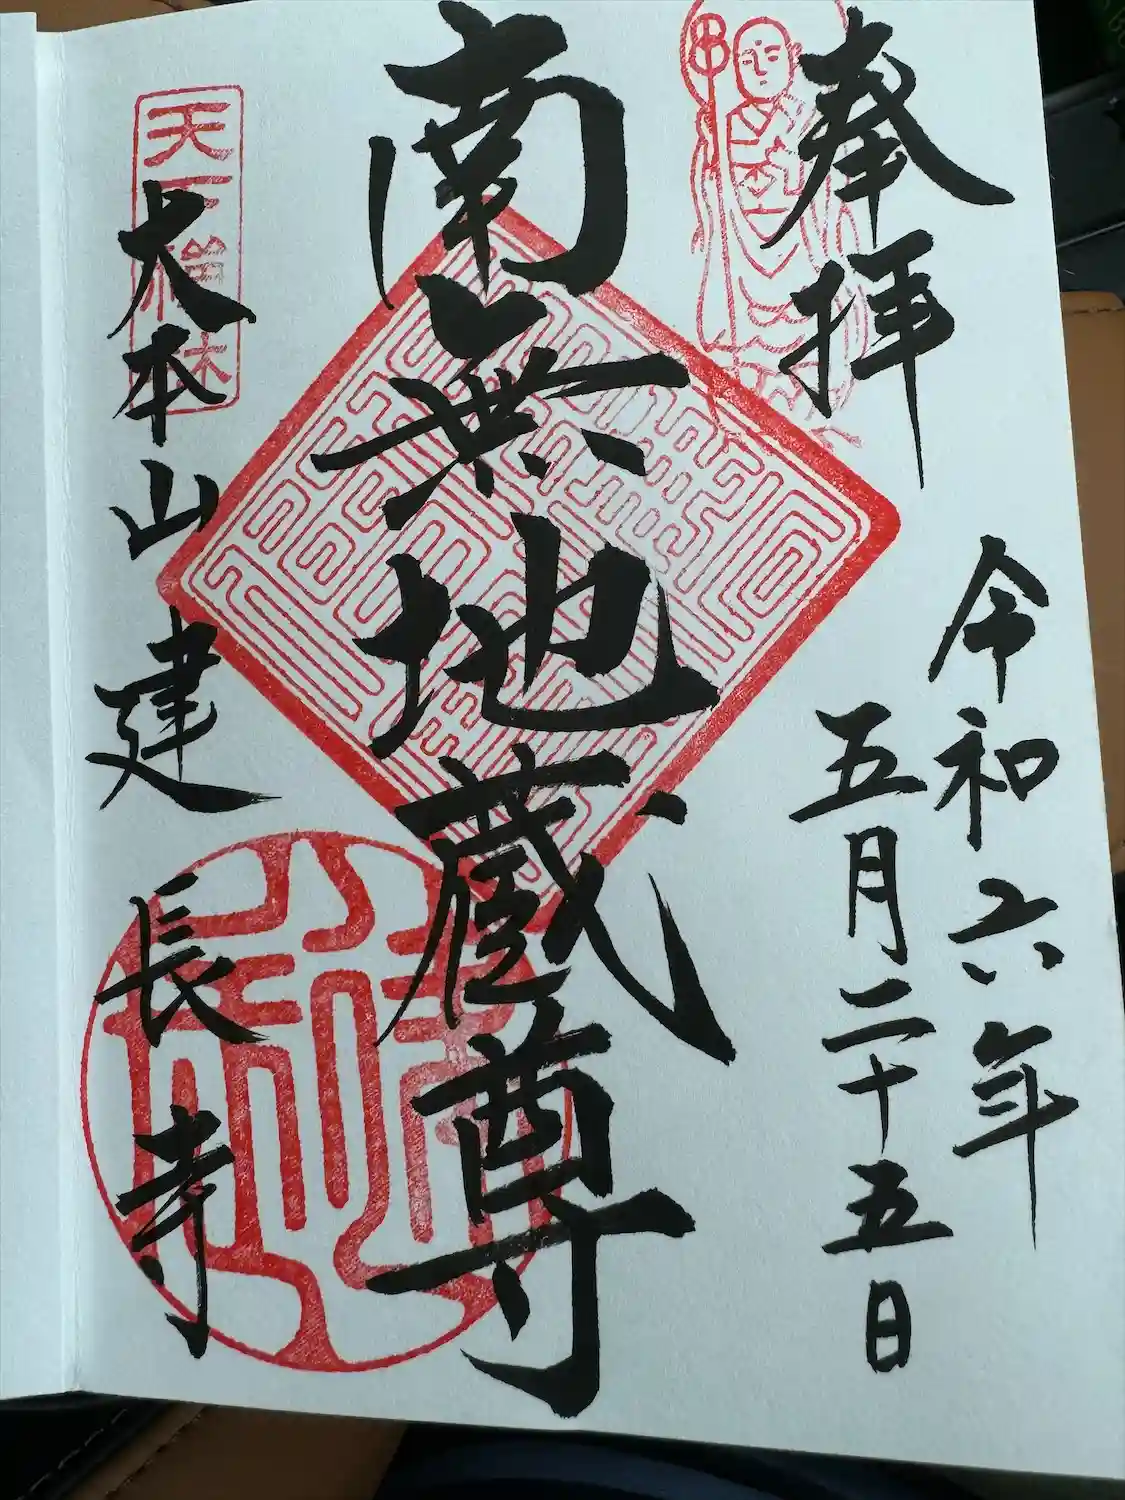 奉拝
令和六年
五月二十五日
南無地蔵尊
天下禅林
大本山建長寺